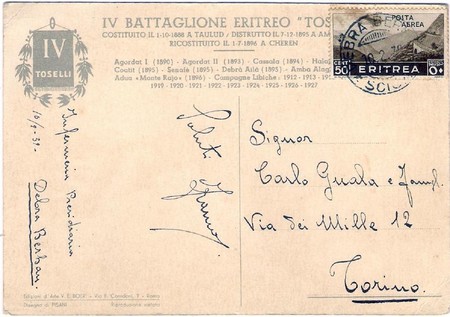 IV BATTAGLIONE ERITREO "TOS
COSTITUITO IL 1-10-1888 A TAULUD / DISTRUTTO IL 7-12-1895 A AM
RICOSTITUITO IL 1-7-1896 A CHEREN
Agordat I (1890) - Agordat II (1893) - Cassala (1894) - Hala
Coatit (1895) - Senafè (1895) - Debra Ailà (1895) - Amba Alag
Adua «Monte Rajo» (1896) - Campagne Libiche - 1912 - 1913 -
1919 - 1920 - 1921 - 1922 - 1923 - 1924 - 1925 - 1926 - 1927
IV
TOSELLI
POSTA
AEREA
CENT
50
ERITREA
Infermeria Presidiaria
Debra Berhan
Saluti
Signor
Carlo Guala e Famgl.
Via dei Mille 12
Torino
Edizioni d'Arte V. E. BOERI - Via - Roma
Disegni di PISANI
Riproduzione vietata